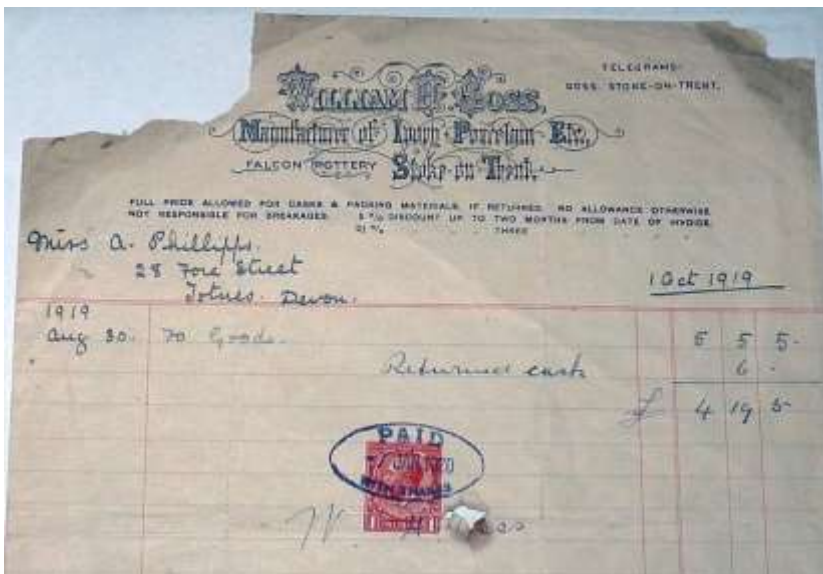 TELEGRAMS-
GOSS, STOKE-ON-TRENT.
WILLIAM H. GOSS,
Manufacturer of Ivory Porcelain Etc.,
FALCON POTTERY Stoke-on-Trent.
FULL PRICE ALLOWED FOR CASKS & PACKING MATERIALS, IF RETURNED. NO ALLOWANCE OTHERWISE
NOT RESPONSIBLE FOR BREAKAGES. 5 % DISCOUNT UP TO TWO MONTHS FROM DATE OF INVOICE.
2½ % THREE
Miss A. Phillipps.
28 Fore Street
Totnes. Devon.
1 Oct 1919
1919
Aug 30. To Goods. 5 5 5.
Returned cask 6 .
£ 4 19 5
PAID
JAN 1920
WITH THANKS
W. H. Goss